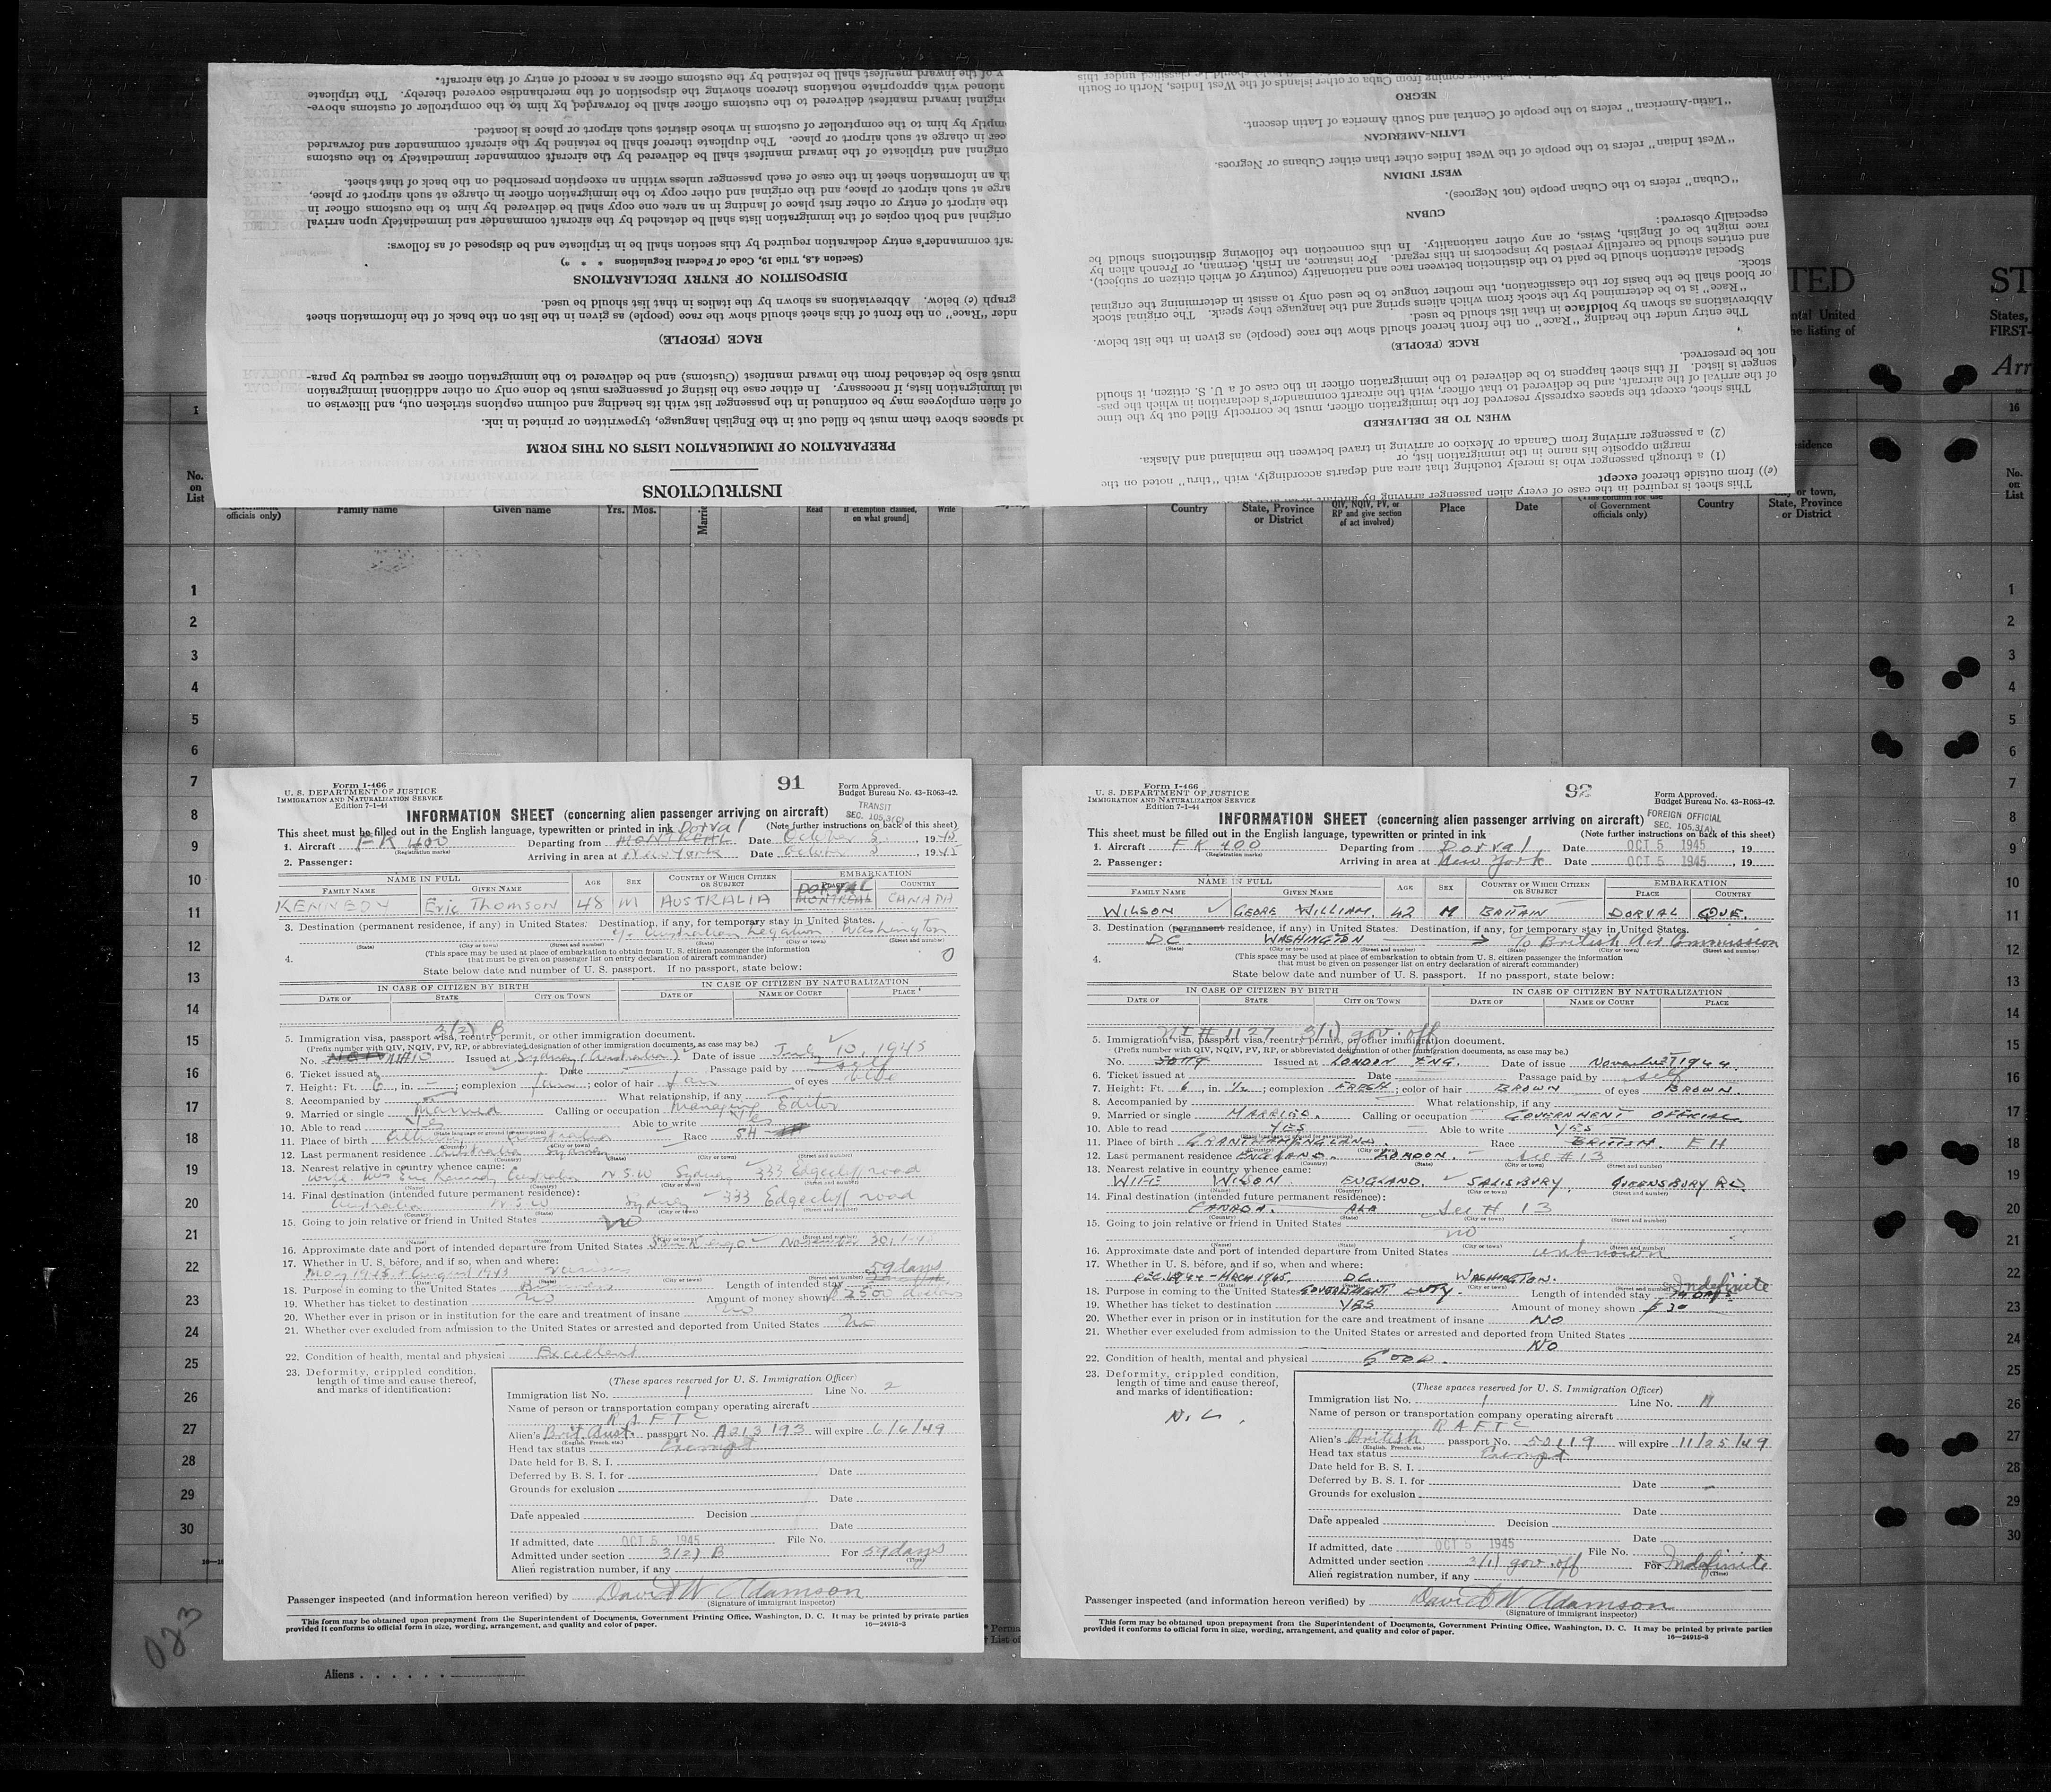 y of the inward manifest shall be retained by the customs officer as a record of entry of the aircraft.
ationed with appropriate notations thereon showing the disposition of the merchandise covered thereby. The triplicate
original inward manifest delivered to the customs officer shall be forwarded by him to the comptroller of customs above-
mptly by him to the comptroller of customs in whose district such airport or place is located.
cer in charge at such airport or place. The duplicate thereof shall be retained by the aircraft commander and forwarded
original and triplicate of the inward manifest shall be delivered by the aircraft commander immediately to the customs
th an information sheet in the case of each passenger unless within an exception prescribed on the back of that sheet.
arge at such airport or place, and the original and other copy to the immigration officer in charge at such airport or place,
the airport of entry or other first place of landing in an area one copy shall be delivered by him to the customs officer in
original and both copies of the immigration lists shall be detached by the aircraft commander and immediately upon arrival
raft commander's entry declaration required by this section shall be in triplicate and be disposed of as follows:
(Section 4.8, Title 19, Code of Federal Regulations * * *)
DISPOSITION OF ENTRY DECLARATIONS
graph (c) below. Abbreviations as shown by the italics in that list should be used.
nder "Race" on the front of this sheet should show the race (people) as given in the list on the back of the information sheet
RACE (PEOPLE)
must also be detached from the inward manifest (Customs) and be delivered to the immigration officer as required by para-
al immigration lists, if necessary. In either case the listing of passengers must be done only on other additional immigration
of alien employees may be continued in the passenger list with its heading and column captions stricken out, and likewise on
d spaces above them must be filled out in the English language, typewritten or printed in ink.
PREPARATION OF IMMIGRATION LISTS ON THIS FORM
INSTRUCTIONS
coming from Cuba or other islands of the West Indies, North or South
NEGRO
"Latin-American" refers to the people of Central and South America of Latin descent.
LATIN-AMERICAN
"West Indian" refers to the people of the West Indies other than either Cubans or Negroes.
WEST INDIAN
"Cuban" refers to the Cuban people (not Negroes).
CUBAN
especially observed:
race might be of English, Swiss, or any other nationality. In this connection the following distinctions should be
and entries should be carefully revised by inspectors in this regard. For instance, an Irish, German, or French alien by
Special attention should be paid to the distinction between race and nationality (country of which citizen or subject),
stock.
or blood shall be the basis for the classification, the mother tongue to be used only to assist in determining the original
"Race" is to be determined by the stock from which aliens spring and the language they speak. The original stock
Abbreviations as shown by boldface in that list should be used.
The entry under the heading "Race" on the front hereof should show the race (people) as given in the list below.
RACE (PEOPLE)
not be preserved.
senger is listed. If this sheet happens to be delivered to the immigration officer in the case of a U. S. citizen, it should
of the arrival of the aircraft, and be delivered to that officer, with the aircraft commander's declaration in which the pas-
This sheet, except the spaces expressly reserved for the immigration officer, must be correctly filled out by the time
WHEN TO BE DELIVERED
(2) a passenger arriving from Canada or Mexico or arriving in travel between the mainland and Alaska.
margin opposite his name in the immigration list, or
(1) a through passenger who is merely touching that area and departs accordingly, with "thru" noted on the
(e)) from outside thereof except
This sheet is required in the case of every alien passenger arriving by aircraft
TED
ntal United
he listing of
ST
States,
FIRST-
Arr
16
No. on List
officials only)
Family name
Given name
Yrs. Mos.
Read
if exemption claimed, on what ground]
Write
Country
State, Province or District
QIV, NQIV, PV, or RP and give section of act involved)
Place
Date
officials only)
Country
or town, State, Province or District
No. on List
1
2
3
4
5
6
7
8
9
10
11
12
13
14
15
16
17
18
19
20
21
22
23
24
25
26
27
28
29
30
Aliens
Form I-466
U. S. DEPARTMENT OF JUSTICE
IMMIGRATION AND NATURALIZATION SERVICE
Edition 7-1-44
91
Form Approved.
Budget Bureau No. 43-R063-42.
TRANSIT
SEC. 105.3(C)
INFORMATION SHEET (concerning alien passenger arriving on aircraft)
This sheet must be filled out in the English language, typewritten or printed in ink
(Note further instructions on back of this sheet)
1. Aircraft FK 400 Departing from MONTREAL Dorval Date October 5, 1945
(Registration marks)
2. Passenger: Arriving in area at New York Date October 5 1945
NAME IN FULL
AGE
SEX
COUNTRY OF WHICH CITIZEN OR SUBJECT
EMBARKATION
FAMILY NAME
GIVEN NAME
PLACE
COUNTRY
KENNEDY Eric Thomson 48 M AUSTRALIA MONTREAL DORVAL CANADA
3. Destination (permanent residence, if any) in United States. Destination, if any, for temporary stay in United States.
c/o Australian Legation. Washington
(State) (City or town) (Street and number) (State) (City or town) (Street and number)
4. (This space may be used at place of embarkation to obtain from U. S. citizen passenger the information
that must be given on passenger list on entry declaration of aircraft commander)
State below date and number of U. S. passport. If no passport, state below:
IN CASE OF CITIZEN BY BIRTH
IN CASE OF CITIZEN BY NATURALIZATION
DATE OF
STATE
CITY OR TOWN
DATE OF
NAME OF COURT
PLACE
3(2) B
5. Immigration visa, passport visa, reentry permit, or other immigration document.
(Prefix number with QIV, NQIV, PV, RP, or abbreviated designation of other immigration documents, as case may be.)
No. Issued at Sydney (Australia) Date of issue July 10, 1945
6. Ticket issued at Date Passage paid by self
7. Height: Ft. 6, in. -; complexion fair; color of hair fair of eyes blue
8. Accompanied by What relationship, if any
9. Married or single Married Calling or occupation Managing Editor
10. Able to read Yes Able to write Yes
11. Place of birth Australia Race SH
12. Last permanent residence Australia Sydney
13. Nearest relative in country whence came:
Wife. Mrs Eric Kennedy Australia N.S.W Sydney 333 Edgecliff road
14. Final destination (intended future permanent residence):
Australia N.S.W Sydney 333 Edgecliff road
15. Going to join relative or friend in United States No
16. Approximate date and port of intended departure from United States November 30, 1945
17. Whether in U. S. before, and if so, when and where:
May 1945 August 1943 various
59 days
18. Purpose in coming to the United States Business Length of intended stay
19. Whether has ticket to destination no Amount of money shown $2500 dollars
20. Whether ever in prison or in institution for the care and treatment of insane no
21. Whether ever excluded from admission to the United States or arrested and deported from United States no
22. Condition of health, mental and physical Excellent
23. Deformity, crippled condition, length of time and cause thereof, and marks of identification:
(These spaces reserved for U. S. Immigration Officer)
Immigration list No. 1 Line No. 2
Name of person or transportation company operating aircraft
R A F T C
Alien's Brit. Aust. passport No. A213193 will expire 6/6/49
(English, French, etc.)
Head tax status Exempt
Date held for B. S. I.
Deferred by B. S. I. for Date
Grounds for exclusion
Date
Date appealed Decision
Date
If admitted, date OCT 5 1945 File No.
Admitted under section 3(2) B For 59 days
(Time)
Alien registration number, if any
Passenger inspected (and information hereon verified) by David W Adamson
(Signature of immigrant inspector)
This form may be obtained upon prepayment from the Superintendent of Documents, Government Printing Office, Washington, D. C. It may be printed by private parties
provided it conforms to official form in size, wording, arrangement, and quality and color of paper.
16-24915-3
Form I-466
U. S. DEPARTMENT OF JUSTICE
IMMIGRATION AND NATURALIZATION SERVICE
Edition 7-1-44
92
Form Approved.
Budget Bureau No. 43-R063-42.
FOREIGN OFFICIAL
SEC. 105.3(A)
INFORMATION SHEET (concerning alien passenger arriving on aircraft)
This sheet must be filled out in the English language, typewritten or printed in ink
(Note further instructions on back of this sheet)
1. Aircraft FK 400 Departing from Dorval Date OCT 5 1945, 19
(Registration marks)
2. Passenger: Arriving in area at New York Date OCT 5 1945, 19
NAME IN FULL
AGE
SEX
COUNTRY OF WHICH CITIZEN OR SUBJECT
EMBARKATION
FAMILY NAME
GIVEN NAME
PLACE
COUNTRY
WILSON GEORE WILLIAM. 42 M BRITAIN DORVAL QUE.
3. Destination (permanent residence, if any) in United States. Destination, if any, for temporary stay in United States.
D.C. WASHINGTON c/o British Air Commission
(State) (City or town) (Street and number) (State) (City or town) (Street and number)
4. (This space may be used at place of embarkation to obtain from U. S. citizen passenger the information
that must be given on passenger list on entry declaration of aircraft commander)
State below date and number of U. S. passport. If no passport, state below:
IN CASE OF CITIZEN BY BIRTH
IN CASE OF CITIZEN BY NATURALIZATION
DATE OF
STATE
CITY OR TOWN
DATE OF
NAME OF COURT
PLACE
NI # 1127 3(1) gov. off
5. Immigration visa, passport visa, reentry permit, or other immigration document.
(Prefix number with QIV, NQIV, PV, RP, or abbreviated designation of other immigration documents, as case may be.)
No. Issued at LONDON ENG. Date of issue 1944
6. Ticket issued at Date Passage paid by self
7. Height: Ft. 6, in. 1/2; complexion FRESH; color of hair BROWN of eyes BROWN.
8. Accompanied by What relationship, if any
9. Married or single MARRIED. Calling or occupation GOVERNMENT OFFICIAL
10. Able to read YES Able to write YES
11. Place of birth GRANTHAM ENGLAND. Race BRITISH. EH
12. Last permanent residence ENGLAND. LONDON. See # 13
13. Nearest relative in country whence came:
WIFE WILSON ENGLAND. SALISBURY. QUEENSBURY RD.
14. Final destination (intended future permanent residence):
CANADA. See # 13
15. Going to join relative or friend in United States
no
16. Approximate date and port of intended departure from United States unknown
17. Whether in U. S. before, and if so, when and where:
DEC. 1944 - MRCH 1945. D.C. WASHINGTON.
Indefinite
18. Purpose in coming to the United States GOVERNMENT DUTY. Length of intended stay
19. Whether has ticket to destination YES Amount of money shown $ 30
20. Whether ever in prison or in institution for the care and treatment of insane NO
21. Whether ever excluded from admission to the United States or arrested and deported from United States
NO
22. Condition of health, mental and physical GOOD.
23. Deformity, crippled condition, length of time and cause thereof, and marks of identification:
(These spaces reserved for U. S. Immigration Officer)
Immigration list No. 1 Line No. 11
Name of person or transportation company operating aircraft
R A F T C
Alien's British passport No. 52119 will expire 11/25/49
(English, French, etc.)
Head tax status Exempt
Date held for B. S. I.
Deferred by B. S. I. for Date
Grounds for exclusion
Date
Date appealed Decision
Date
If admitted, date OCT 5 1945 File No.
Admitted under section 3(1) gov. off For Indefinite
(Time)
Alien registration number, if any
Passenger inspected (and information hereon verified) by David W Adamson
(Signature of immigrant inspector)
This form may be obtained upon prepayment from the Superintendent of Documents, Government Printing Office, Washington, D. C. It may be printed by private parties
provided it conforms to official form in size, wording, arrangement, and quality and color of paper.
16-24915-3